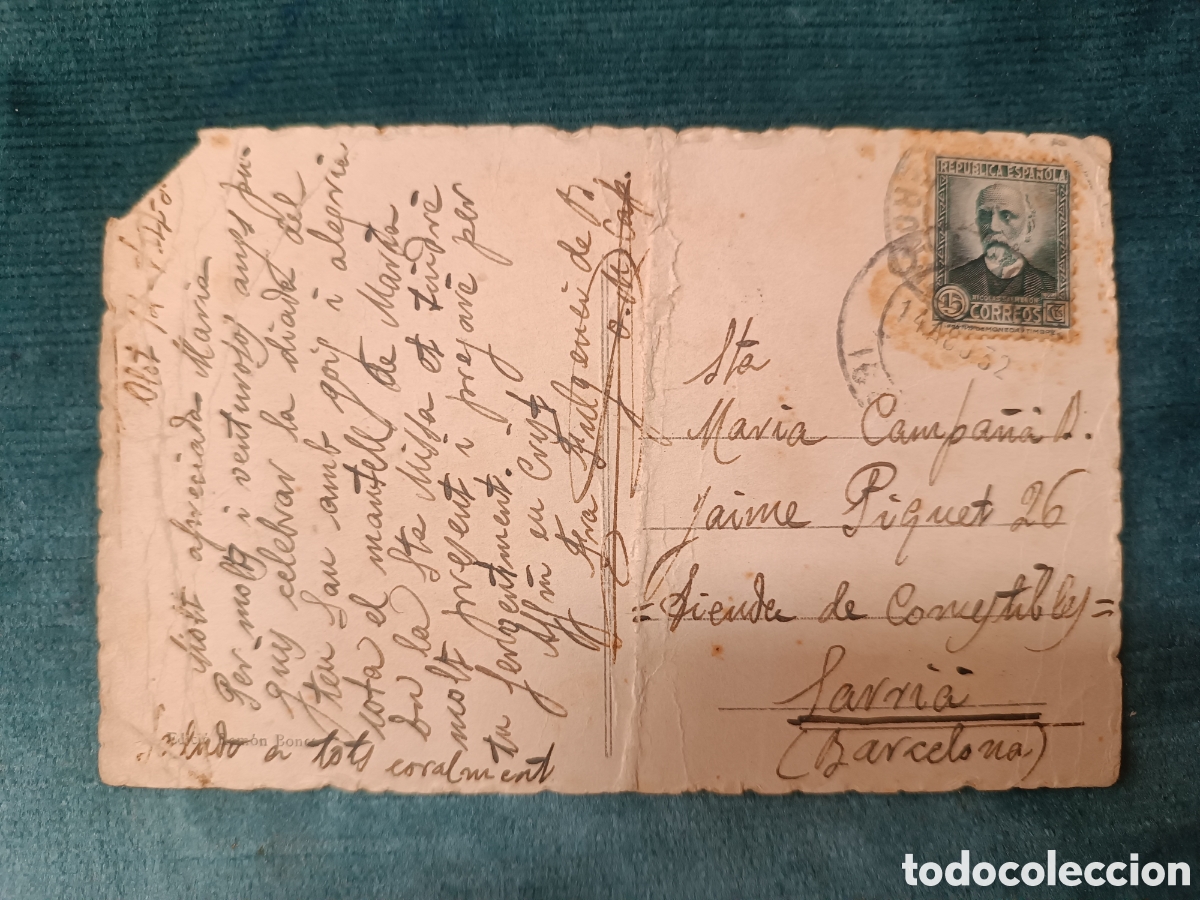 Olot 12
Molt apreciada Maria
Per molts i venturosos anys pu-
guis celebrar la diada del
teu San amb goig i alegria
sota el mantell de Maria
en la Sta Missa et tindré
molt present i pregaré per
tu fervent ment.
Affm en Crist
Fra Fulgenci de B.
O. M. Cap.
Saludo a tots coralment
Edició Ramón Bonet
REPUBLICA ESPAÑOLA
15 CORREOS CTS
14 AGO 32
Sta
Maria Campañá B.
Jaime Piquet 26
=Tienda de Comestibles=
Sarriá
(Barcelona)
todocoleccion